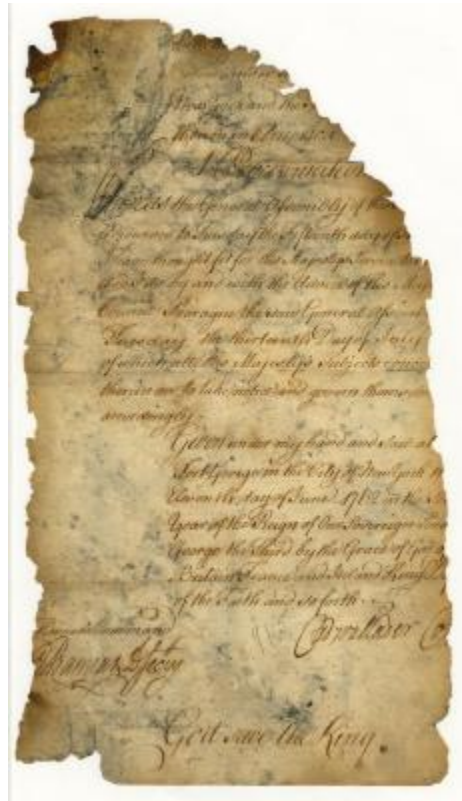 A Proclamation
Whereas the General Assembly of this
adjourned to Tuesday the fifteenth day of
I have thought fit for his Majesty's Service
by and with the Advice of his Maj
Council Prorogue the said General Assem
Tuesday the thirteenth Day of July
of which all his Majesty's Subjects conce
therein are to take notice and govern themsel
accordingly.
Given under my hand and seal at
Fort George in the City of New York
Eleventh day of June 1762 in the
Year of the Reign of Our Sovereign
George the Third by the Grace of God
Britain France and Ireland King
of the Faith and so forth.
Cadwallader Co
Banyar D Secry
God save the King.